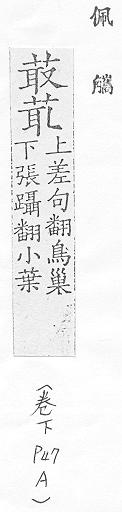 佩觿
菆
上差句翻鳥巢
下張躡翻小葉
(卷下P47A)